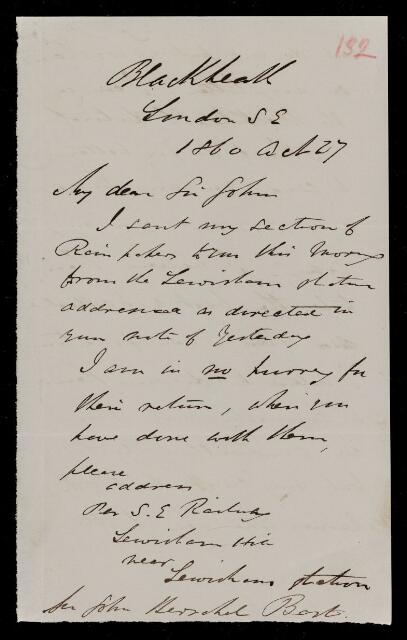 132
Blackheath
London S E
1860 Oct 27
My dear Sir John
I sent my section of
Rain to you this Morng
from the Lewisham station
addressed as directed in
your note of Yesterday
I am in no hurry for
their return, when you
have done with them,
please
address
Per S. E Railway
Lewisham Hill
near
Lewisham station
Sir John Herschel Bart.